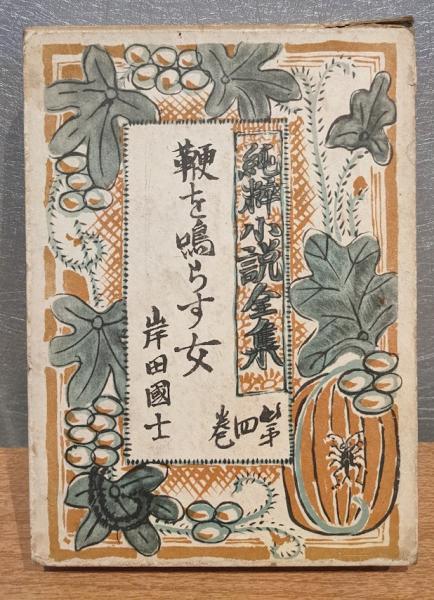 純粋小説全集
第四巻
鞭を鳴らす女
岸田國士